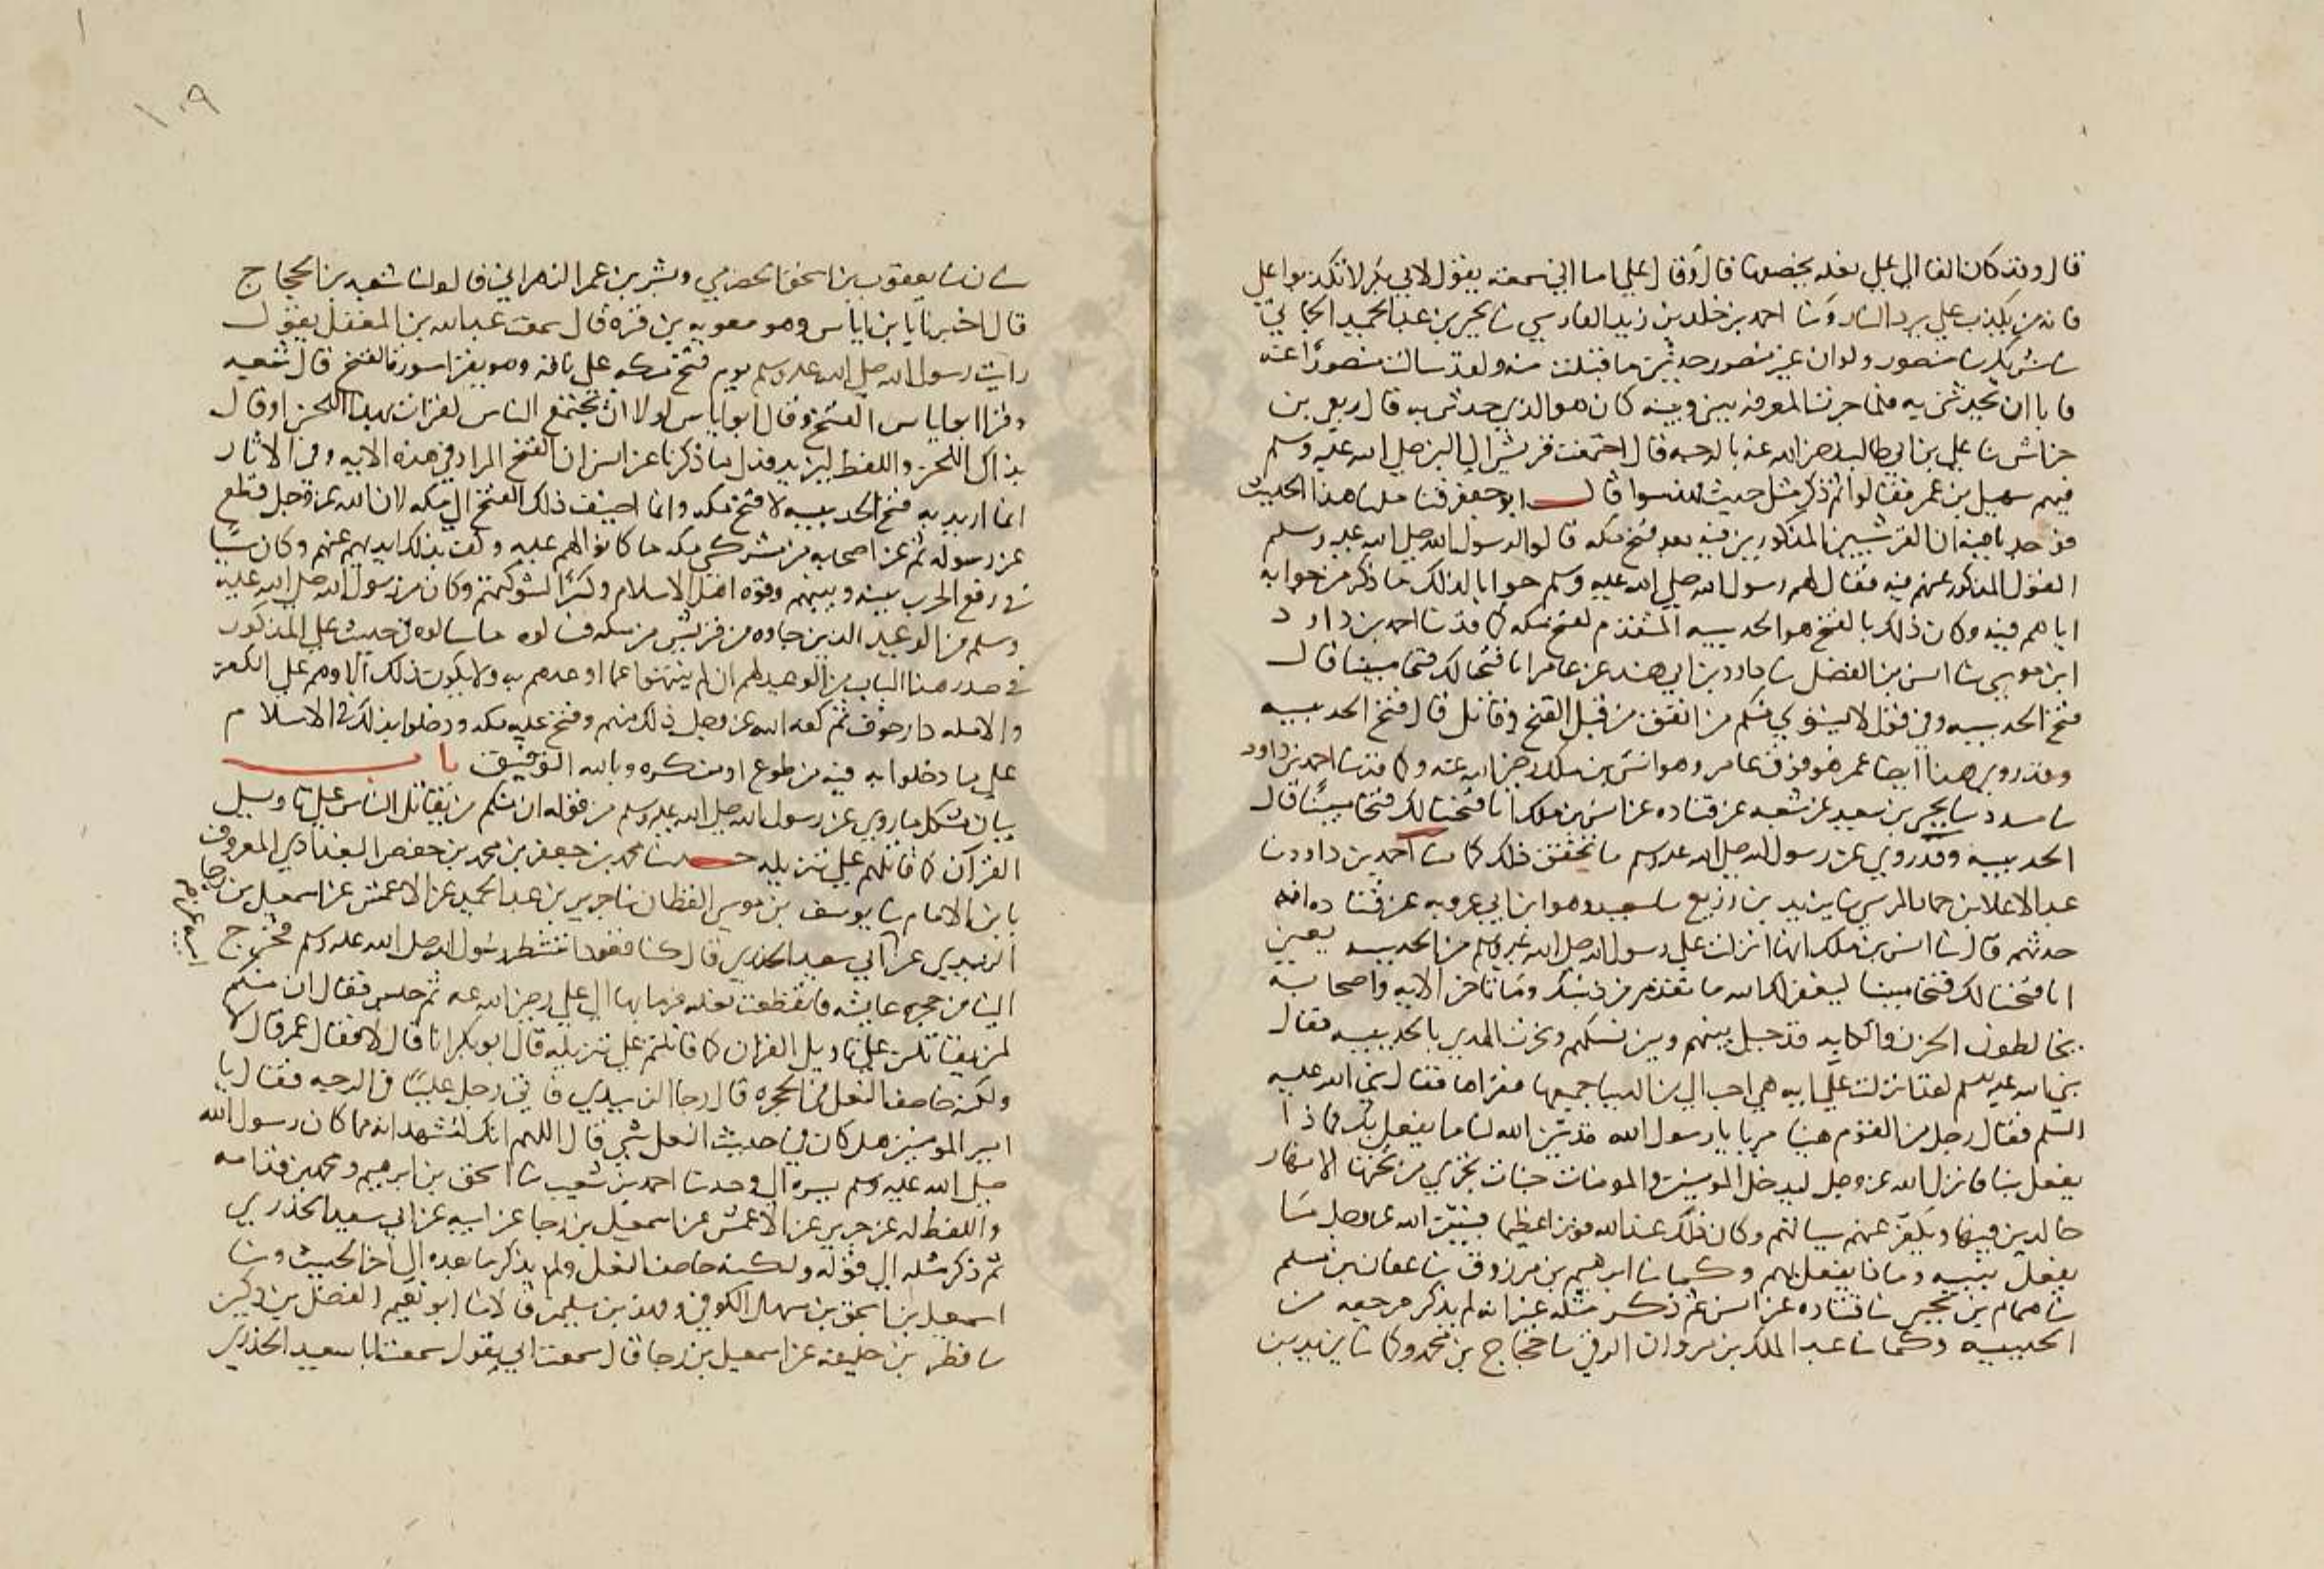 قال وقد كان القا الي علي نعله يخصفها قال وقال علي اما اني سمعته يقول لا تكذبوا علي
فانه من يكذب علي يرد النار وثنا احمد بن خلد بن زيد الفارسي ثنا يحيى بن عبد الحميد الحماني
ثنا شريك ثنا منصور ولو ان غير منصور حدثني ما قبلت منه ولقد سالت منصورا عنه
فابا ان يحدثني به فلما جرت المعرفه بيني وبينه كان هو الذي حدثني به قال ربعي بن
حراش ثنا علي بن ابي طالب رضي الله عنه بالرحبه قال اجتمعت قريش الي النبي صلي الله عليه وسلم
فيهم سهيل بن عمر فقالوا ثم ذكر مثل حديث قال ابو جعفر فتاملنا هذا الحديث
فوجدنا فيه ان القرشيين المذكورين فيه بعد فتح مكه قالوا لرسول الله صلي الله عليه وسلم
القول المذكور عنهم فيه فقال لهم رسول الله صلي الله عليه وسلم جوابا لذلك ما ذكر من جوابه
اياهم فيه وكان ذلك بالفتح هو الحديبيه المتقدم لفتح مكه كما قد ثنا احمد بن داود
ابن موسي ثنا انس بن الفضل ثنا داود بن ابي هند عن عامر انا فتحنا لك فتحا مبينا قال
فتح الحديبيه وفي قوله لا يستوي منكم من انفق من قبل الفتح وقاتل قال فتح الحديبيه
وقد روي هذا ايضا عمن هو فوق عامر وهو انس بن ملك رضي الله عنه كما قد ثنا احمد بن داود
ثنا مسدد ثنا يحيى بن سعيد عن شعبه عن قتاده عن انس بن ملك انا فتحنا لك فتحا مبينا قال
الحديبيه وقد روي عن رسول الله صلي الله عليه وسلم ما يحقق ذلك كما ثنا احمد بن داود ثنا
عبد الاعلا بن حماد النرسي ثنا يزيد بن زريع ثنا سعيد وهو ابن ابي عروبه عن قتاده انه
حدثهم قال ثنا انس بن ملك انها انزلت علي رسول الله صلي الله عليه وسلم من الحديبيه يعني
انا فتحنا لك فتحا مبينا ليغفر لك الله ما تقدم من ذنبك وما تاخر الايه واصحابه
يخالطون الحزن والكابه قد حيل بينهم وبين نسكهم ونحرت الهدي بالحديبيه فقال
نبي الله عليه السلم لقد انزلت علي ايه هي احب الي من الدنيا جميعها فقراها فقال نبي الله عليه
السلم فقال رجل من القوم هنيا مريا يا رسول الله قد بين الله لنا ما يفعل بك فماذا
يفعل بنا فانزل الله عز وجل ليدخل المومنين والمومنات جنات تجري من تحتها الانهار
خالدين فيها ويكفر عنهم سياتهم وكان ذلك عند الله فوزا عظيما فبين الله عز وجل ما
يفعل بنبيه وماذا يفعل بهم وكما ثنا ابرهيم بن مرزوق ثنا عفان بن مسلم
ثنا همام بن يحيى ثنا قتاده عن انس ثم ذكر مثله غير انه لم يذكر مرجعه من
الحديبيه وكما ثنا عبد الملك بن مروان الرقي ثنا حجاج بن محمد وكما ثنا يزيد بن
١٠٩
سنان ثنا يعقوب بن اسحق الحضرمي وبشر بن عمر الزهراني قالوا ثنا شعبه بن الحجاج
قال اخبرنا ابو اياس وهو معويه بن قره قال سمعت عبد الله بن المغفل يقول
رايت رسول الله صلي الله عليه وسلم يوم فتح مكه علي ناقه وهو يقرا سوره الفتح قال شعبه
وقرا ابو اياس الفتح وقال ابو اياس لولا ان يجتمع الناس لقرات بهذا اللحن او قال
بذاك اللحن واللفظ ليزيد فدل ما ذكرنا عن انس ان الفتح المراد في هذه الايه وفي الاثار
انما اريد به فتح الحديبيه لا فتح مكه وانما اضيف ذلك الفتح الي مكه لان الله عز وجل قطع
عن رسوله ثم عن اصحابه من مشركي مكه ما كانوا لهم عليه وكف بذلك ايديهم عنهم وكان سببا
في رفع الحرب بينه وبينهم وقوه اهل الاسلام وكسرا لشوكتهم وكان من رسول الله صلي الله عليه
وسلم من الوعيد الذين جاوه من قريش من مكه فسالوه ما سالوه في حديث علي المذكور
في صدر هذا الباب من الوعيد لهم ان لم ينتهوا عما اوعدهم به ولا يكون ذلك الا وهم علي الكفر
والا مكه دار خوف ثم كفه الله عز وجل ذلك منهم وفتح عليه مكه ودخلوا بذلك في الاسلام
علي ما دخلوا به فيه من طوع او من كره وبالله التوفيق باب
بيان مشكل ما روي عن رسول الله صلي الله عليه وسلم من قوله ان منكم من يقاتل الناس علي تاويل
القرآن كما قاتلهم علي تنزيله حدثنا محمد بن جعفر بن محمد بن حفص البغدادي المعروف
بابن الامام ثنا يوسف بن موسي القطان ثنا جرير بن عبد الحميد عن الاعمش عن اسمعيل بن رجا
الزبيدي عن ابي سعيد الخدري قال كنا قعودا ننتظر رسول الله صلي الله عليه وسلم فخرج
الينا من حجره عايشه فانقطعت نعله فرما بها الي علي رضي الله عنه ثم جلس فقال ان منكم
لمن يقاتلن علي تاويل القران كما قاتلتم علي تنزيله قال ابو بكر انا قال لا فقال عمر قال لا
ولكنه خاصف النعل في الحجره قال رجا الزبيدي فاتي رجل عليا في الرحبه فقال يا
امير المومنين هل كان في حديث النعل شي قال اللهم انك لتشهد انه مما كان رسول الله
صلي الله عليه وسلم يسره الي وحدثنا احمد بن شعيب ثنا اسحق بن ابرهيم ومحمد بن قدامه
واللفظ له عن جرير عن الاعمش عن اسمعيل بن رجا عن ابيه عن ابي سعيد الخدري
ثم ذكر مثله الي قوله ولكنه خاصف النعل ولم يذكر ما بعده الي اخر الحديث وثنا
اسمعيل بن اسحق بن سهل الكوفي وفهد بن سليمن قالا ثنا ابو نعيم الفضل بن دكين
ثنا فطر بن خليفه عن اسمعيل بن رجا قال سمعت ابي يقول سمعت ابا سعيد الخدري